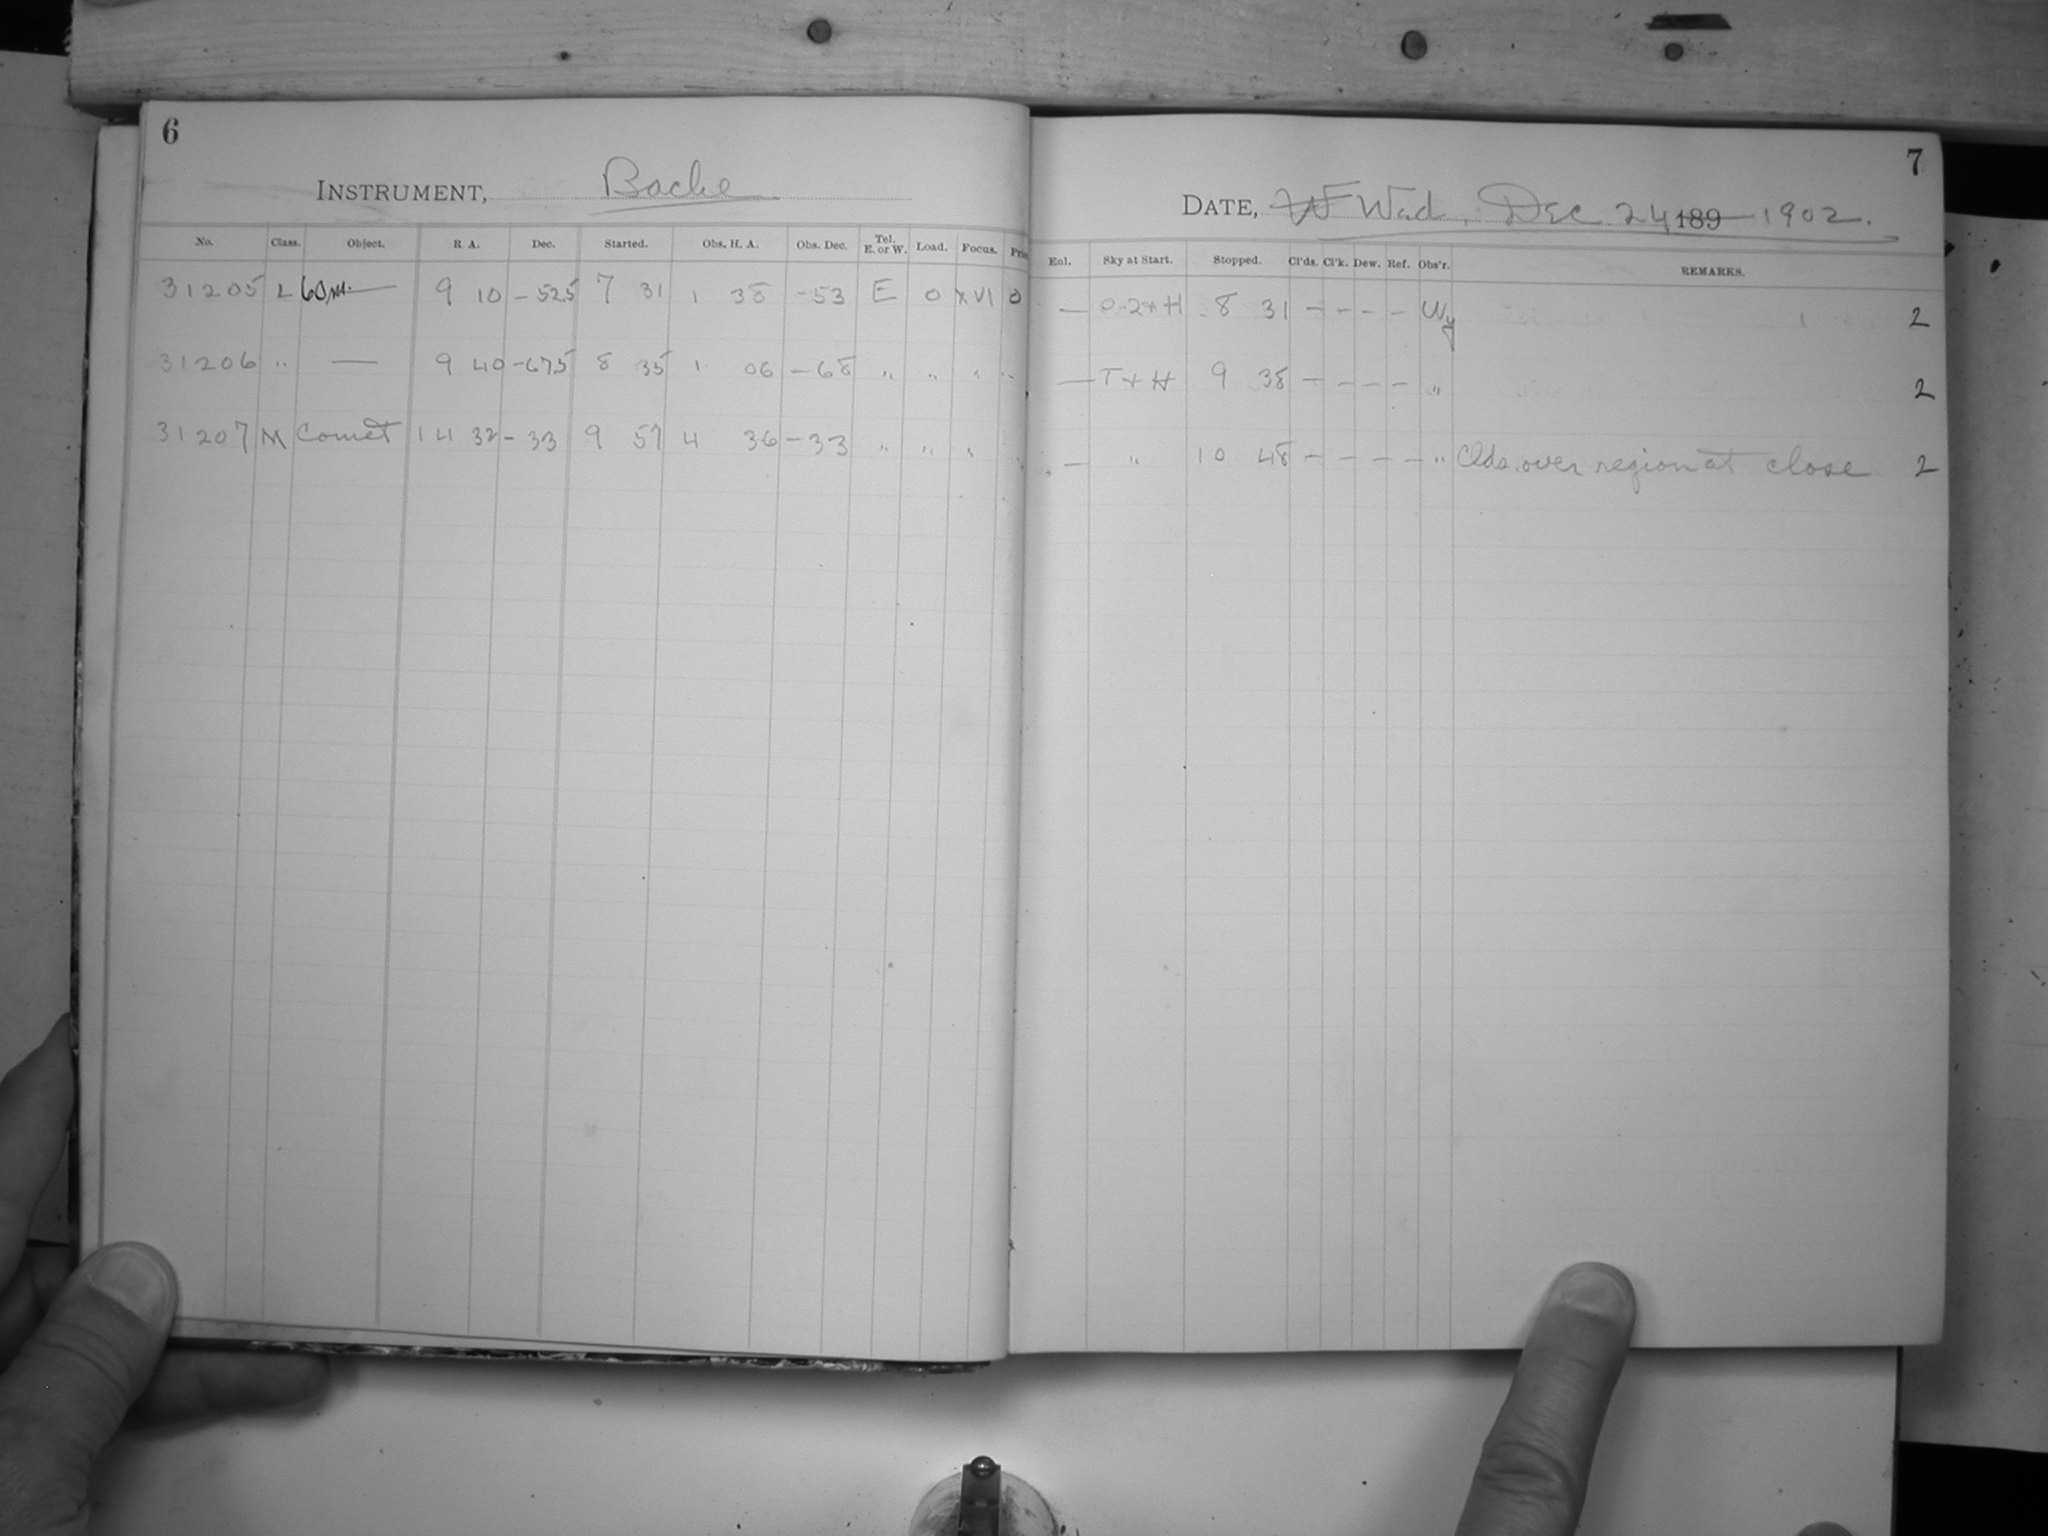 6
INSTRUMENT, Bache
No. Class. Object. R A. Dec. Started. Obs. H. A. Obs. Dec. Tel. E. or W. Load. Focus. Pris
31205 L 60m. — 9 10 -52.5 7 31 1 38 -53 E 0 XVI 0
31206 " — 9 40 -67.5 8 35 1 06 -68 " " " "
31207 M Comet 14 32 -33 9 57 4 36 -33 " " " "
7
DATE, Wed. Dec 24 189 1902.
Eol. Sky at Start. Stopped. Cl'ds. Cl'k. Dew. Ref. Obs'r. REMARKS.
— 0.2+H 8 31 – – – – Wy 2
— T+H 9 38 – – – – " 2
— " 10 48 – – – – " Clds. over region at close 2